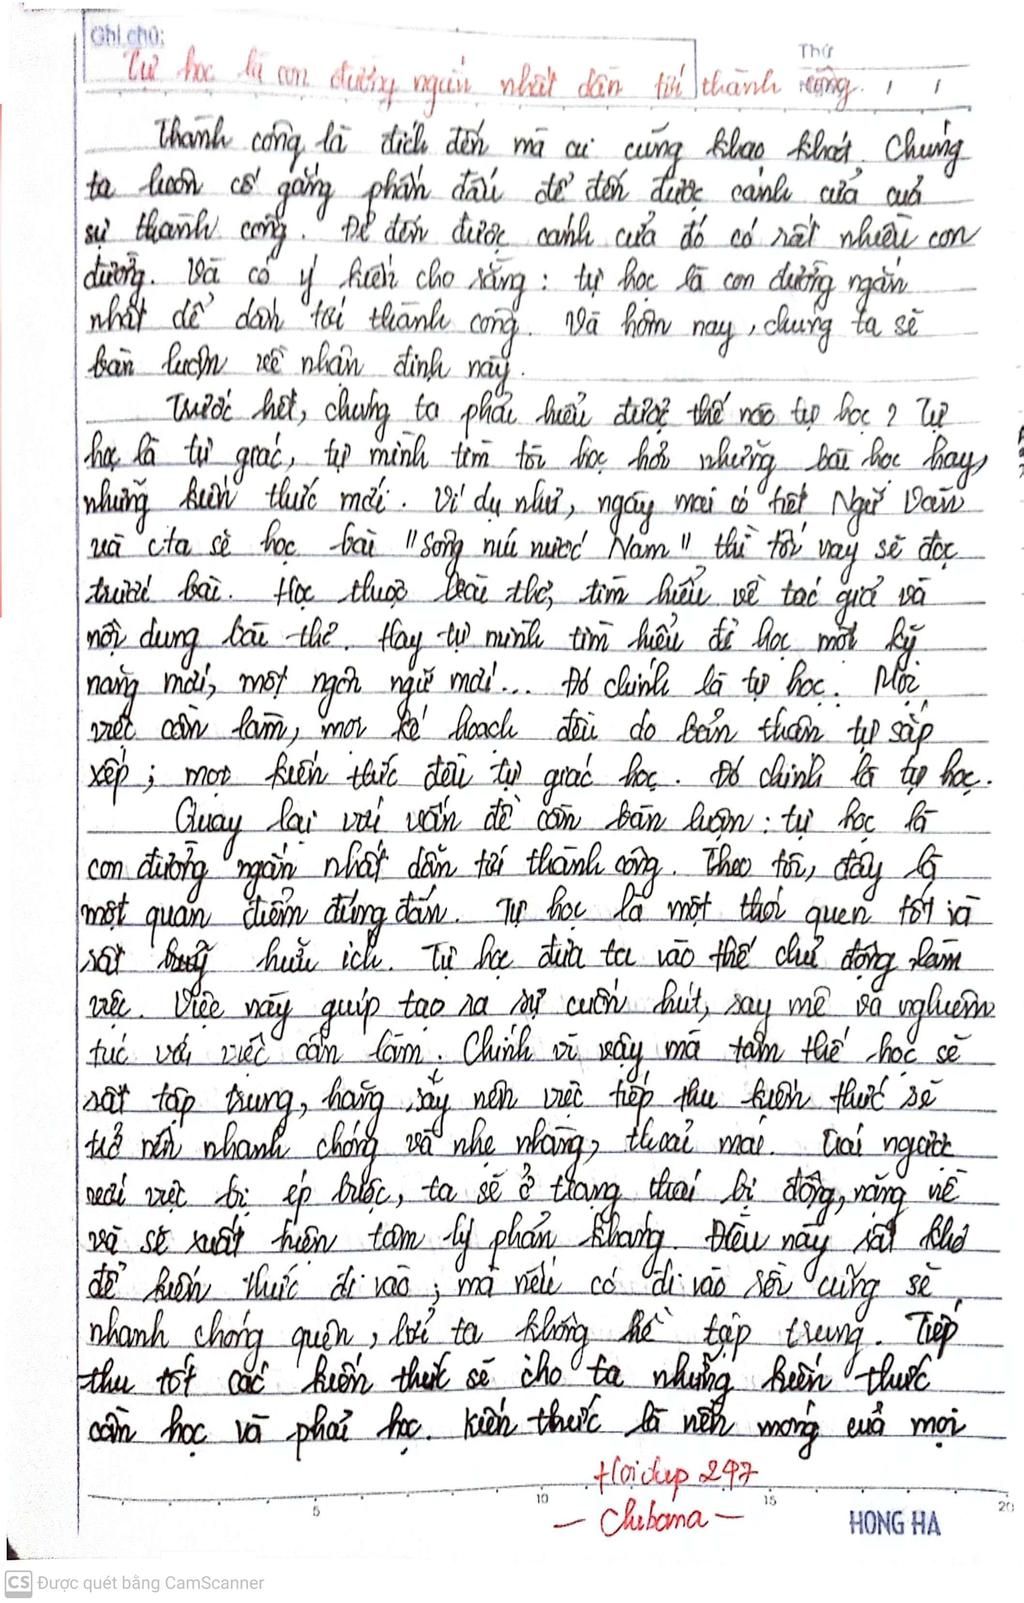 Ghi chú:
Thứ
Tự học là con đường ngắn nhất dẫn tới thành công.
Thành công là đích đến mà ai cũng khao khát. Chúng
ta luôn cố gắng phấn đấu để đến được cánh cửa của
sự thành công. Để đến được cánh cửa đó có rất nhiều con
đường. Và có ý kiến cho rằng: tự học là con đường ngắn
nhất để dẫn tới thành công. Và hôm nay, chúng ta sẽ
bàn luận về nhận định này.
Trước hết, chúng ta phải hiểu được thế nào tự học? Tự
học là tự giác, tự mình tìm tòi học hỏi những bài học hay,
những kiến thức mới. Ví dụ như, ngày mai có tiết Ngữ Văn
và cta sẽ học bài "Sông núi nước Nam" thì tối nay sẽ đọc
trước bài. Học thuộc bài thơ, tìm hiểu về tác giả và
nội dung bài thơ. Hay tự mình tìm hiểu để học một kỹ
năng mới, một ngôn ngữ mới... Đó chính là tự học. Mọi
việc cần làm, mọi kế hoạch đều do bản thân tự sắp
xếp; mọi kiến thức đều tự giác học. Đó chính là tự học.
Quay lại với vấn đề cần bàn luận: tự học là
con đường ngắn nhất dẫn tới thành công. Theo tôi, đây là
một quan điểm đúng đắn. Tự học là một thói quen tốt và
rất hữu ích. Tự học đưa ta vào thế chủ động làm
việc. Việc này giúp tạo ra sự cuốn hút, say mê và nghiêm
túc với việc cần làm. Chính vì vậy mà tâm thế học sẽ
rất tập trung, hăng say nên việc tiếp thu kiến thức sẽ
trở nên nhanh chóng và nhẹ nhàng, thoải mái. Trái ngược
với việc bị ép buộc, ta sẽ ở trạng thái bị động, nặng nề
và sẽ xuất hiện tâm lý phản kháng. Điều này rất khó
để kiến thức đi vào; mà nếu có đi vào rồi cũng sẽ
nhanh chóng quên, bởi ta không hề tập trung. Tiếp
thu tốt các kiến thức sẽ cho ta những kiến thức
cần học và phải học. Kiến thức là nền móng của mọi
Hoidap 247
- Chibana -
5 10 15 20
HONG HA
CS Được quét bằng CamScanner